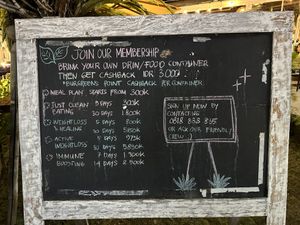 JOIN OUR MEMBERSHIP
BRING YOUR OWN DRINK/FOOD CONTAINER
THEN GET CASHBACK IDR 3.000!
*BURGREENS POINT CASHBACK PER CONTAINER
MEAL PLAN STARTS FROM 300K
JUST CLEAN EATING
5 DAYS 300K
20 DAYS 1.800K
WEIGHTLOSS & HEALING
5 DAYS 800K
ACTIVE WEIGHTLOSS
5 DAYS 975K
IMMUNE BOOSTING
7 DAYS 1.300K
14 DAYS 2.500K
SIGN UP NOW BY
CONTACTING
0818 838 845
OR ASK OUR FRIENDLY
CREW :)